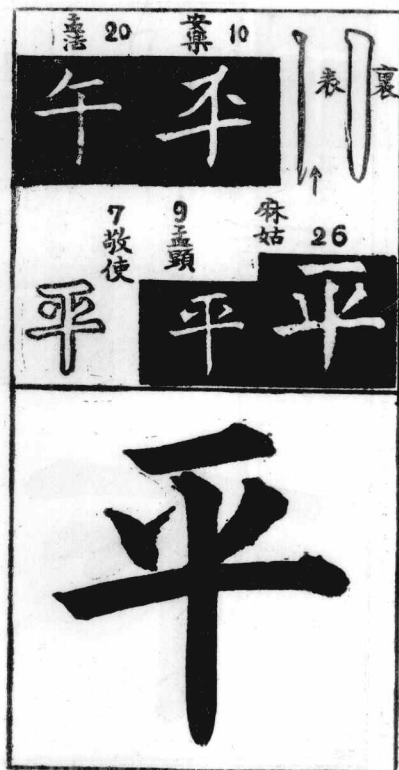 孟法 20
安樂 10
表
裏
午
平
7 敬使
9 孟頭
麻姑 26
平
平
平
平